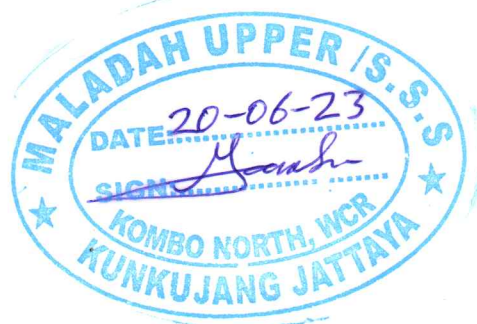 MALADAH UPPER /S.S.S
DATE: 20-06-23
SIGN:
KOMBO NORTH, WCR
KUNKUJANG JATTAYA